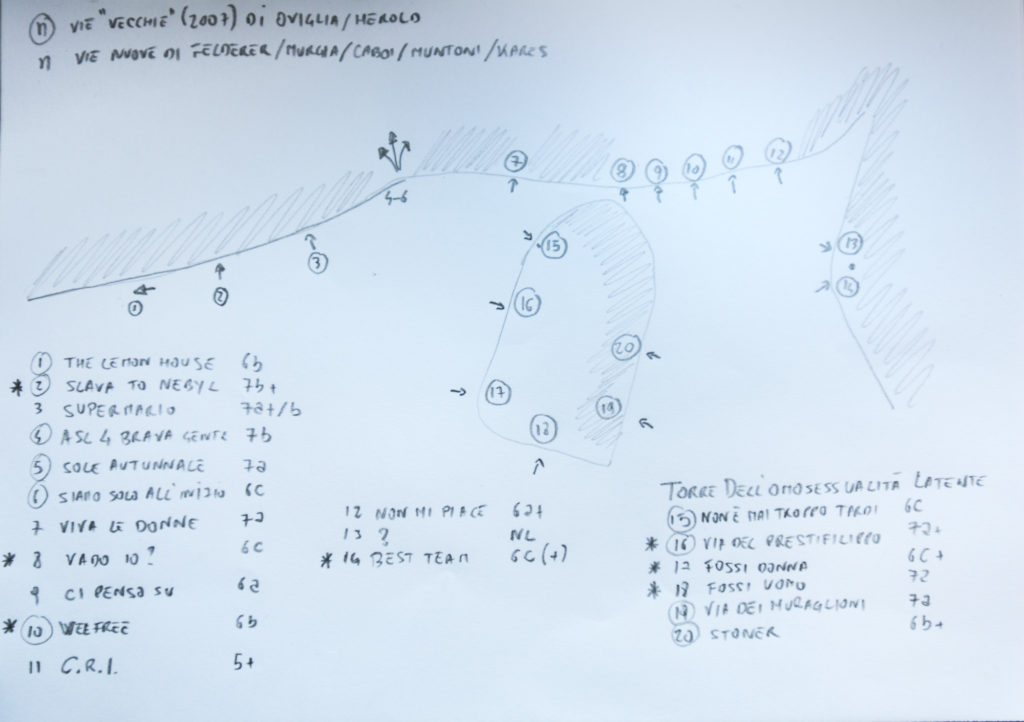 (n) VIE "VECCHIE" (2007) DI OVIGLIA/HEROLD
n VIE NUOVE DI FELDERER/MURGIA/CABOI/MUNTONI/KARES
7
8 9 10 11 12
4-6
3
2
1
13
14
15
16
20
17
19
18
1 THE LEMON HOUSE 6b
* 2 SLAVA TO NEBYL 7b+
3 SUPERMARIO 7a+/b
4 ASL 4 BRAVA GENTE 7b
5 SOLE AUTUNNALE 7a
6 SIAMO SOLO ALL'INIZIO 6c
7 VIVA LE DONNE 7a
* 8 VADO IO? 6c
9 CI PENSO SU 6a
* 10 WEEFREE 6b
11 C.R.I. 5+
12 NON MI PIACE 6a+
13 ? NL
* 14 BEST TEAM 6c(+)
TORRE DELL'OMOSESSUALITÀ LATENTE
15 NON È MAI TROPPO TARDI 6c
* 16 VIA DEL PRESTIFILIPPO 7a+
* 17 FOSSI DONNA 6c+
* 18 FOSSI UOMO 7a
19 VIA DEI MURAGLIONI 7a
20 STONER 6b+